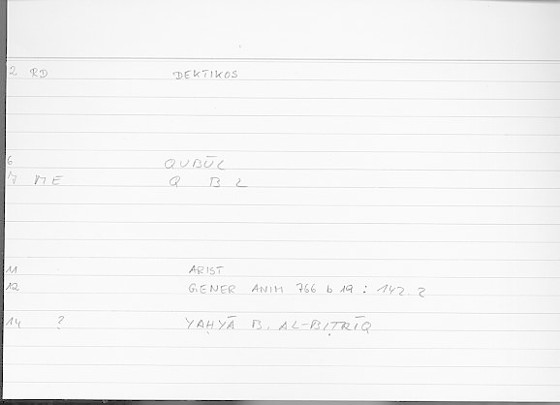 2 RD DEKTIKOS
6 QUBŪL
7 ME Q B L
11 ARIST
12 GENER ANIM 766 b 19 : 142.2
14 ? YAḤYĀ B. AL-BIṬRĪQ